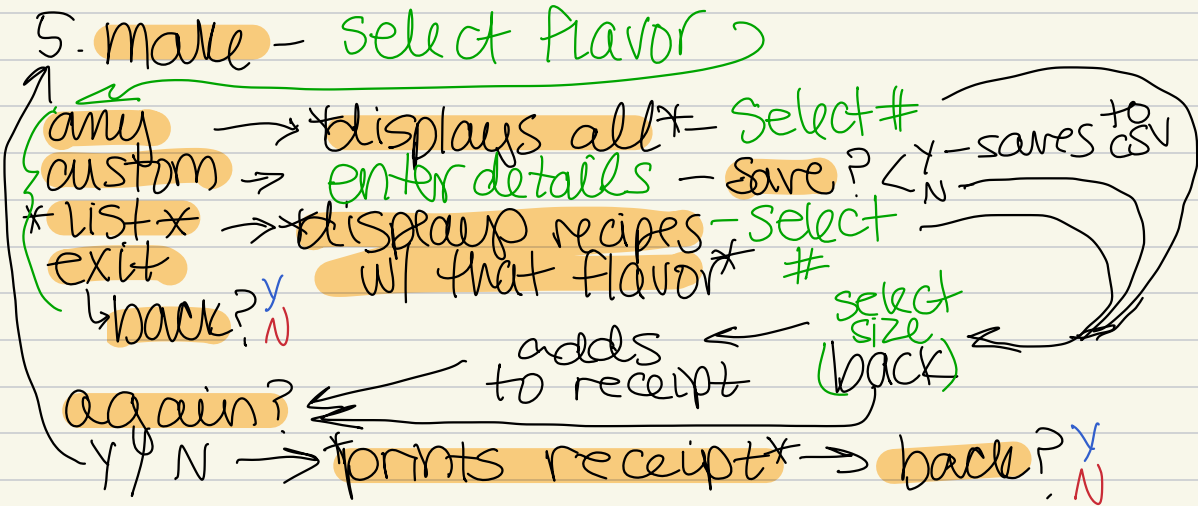 5. make - select flavor
any → *displays all* - select #
custom → enter details - save? < Y - saves to csv
N
*list* → *displays recipes - select #
w/ that flavor*
exit
↳ back? Y N
select size
(back)
adds to receipt
again?
Y / N → *prints receipt* → back? Y N